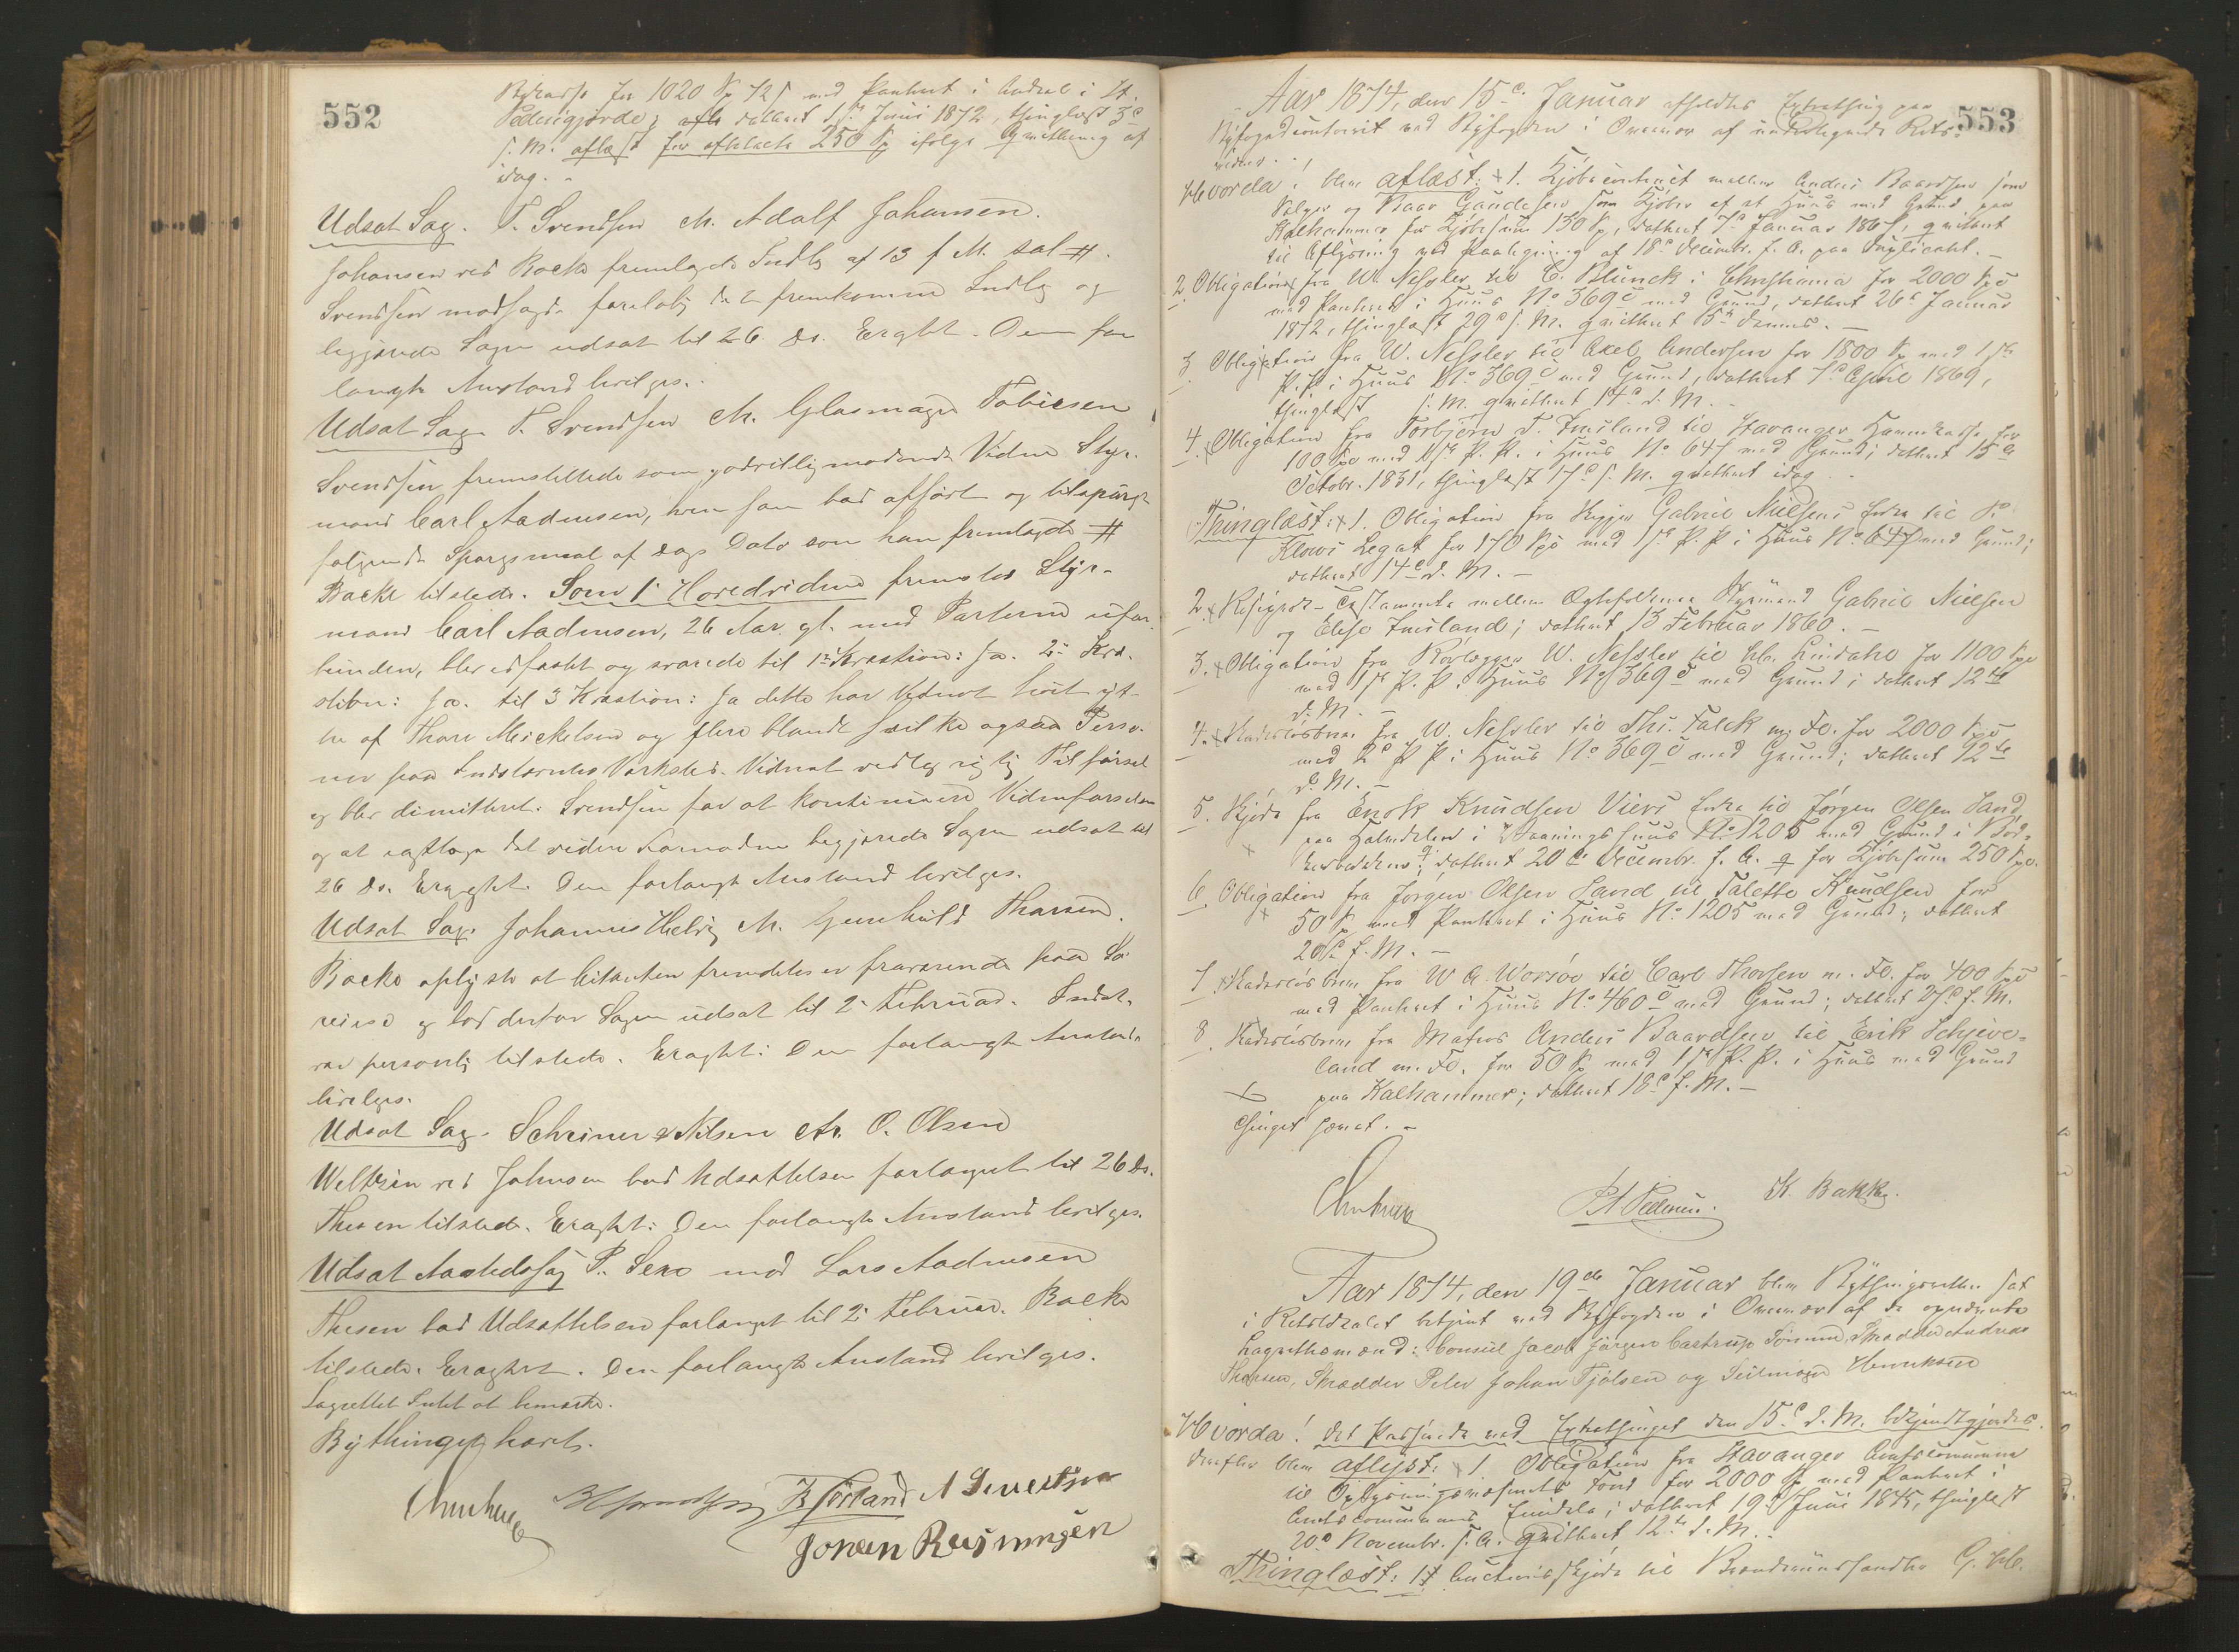 552
for 1020 Sp 72 s med Panteret i Andeel i St.
Pedersgjerde; dateret 1 Juni 1872, thinglæst 3e
s. M. aflæst for afbetalte 250 Sp ifølge Qvittering af
idag. -
Udsat Sag. T. Svendsen M. Adolf Johansen.
Johansen ved Backe fremlagde Indlæg af 13 f M. sal #.
Svendsen modsagde foreløbig det fremkomne Indlæg og
begjærede Sagen udsat til 26 ds. Eragtet. Den for
langte Anstand bevilges.
Udsat Sag T. Svendsen M. Glasmager Tobiesen
Svendsen fremstillede som godvillig mødende Vidne Styr-
mand Carl Aadnesen, hvem han bad afhørt og tilspurgt
følgende Spørgsmaal af Dags Dato som han fremlagde #
Backe tilstede. Som 1 Hovedvidne fremstod Styr-
mand Carl Aadnesen, 26 Aar gl. med Parterne ufor-
bunden, blev edfæstet og svarede til 1ste Kvæstion: Ja. 2: Kvæ-
stion: Ja. til 3 Kvæstion: Ja dette har Vidnet hørt yt-
tre af Thore Mickelsen og flere blandt hvilke ogsaa Perso-
ner paa Indstævntes Værksted. Vidnet vedtog rigtig Tilførsel
og blev dimitteret. Svendsen for at kontinuere Vidneførselen
og at iagttage det videre Fornødne begjærede Sagen udsat til
26 ds. Eragtet. Den forlangte Anstand bevilges.
Udsat Sag. Johannes Helvig M. Gunhild Thorsen.
Backe oplyste at Citanten fremdeles er fraværende paa Sø-
reise og bad derfor Sagen udsat til 2 Februar. Indst.
var personlig tilstede. Eragtet: Den forlangte Anstand
bevilges.
Udsat Sag. Schreiner & Nilsen M. O. Olsen
Weltzin ved Johnsen bad Udsættelsen forlænget til 26 ds.
Thesen tilstede. Eragtet: Den forlangte Anstand bevilges.
Udsat Aastedssag P. Sexe mod Lars Aadnesen
Thesen bad Udsættelsen forlænget til 2 Februar. Backe
tilstede. Eragtet. Den forlangte Anstand bevilges.
Lagrettet Intet at bemærke.
Bythinget hævet.
553
Aar 1874, den 15de Januar afholdtes Extrathing paa
Byfogedcontoiret ved Byfogden i Overvær af undertegnede Rets-
vidner.
Hvorda! blev aflæst: 1. Kjøbecontract mellem Anders Baardsen som
Sælger og Baar Gaudesen som Kjøber af et Huus med Grund paa
Kalhammer for Kjøbesum 130 Sp, dateret 7de Januar 1867, qvitteret
til Aflysning ved Paategning af 18de Decembr. f. A. paa Duplicatet. -
2 Obligation fra W. Nessler til C. Blunck i Christiania for 2000 Spd
med Panteret i Huus No 369c med Grund, dateret 26de Januar
1872, thinglæst 29de s. M. qvitteret 15de dennes. -
3 Obligation fra W. Nessler til Axel Andersen for 1800 Sp med 1ste
P. P. i Huus No 369c med Grund, dateret 7de April 1869,
thinglæst s. M. qvitteret 14de d. M. -
4. Obligation fra Torbjørn T. Imsland til Stavanger Havnekasse for
100 Spd med 1ste P. R. i Huus No 647 med Grund; dateret 15de
Octobr. 1831, thinglæst 17de s. M. qvitteret idag -
Thinglæst: 1. Obligation fra Skipper Gabriel Nielsens Enke til
Legat for 170 Spd med 1ste P. P. i Huus No 647 med Grund;
dateret 14de d. M. -
2. Testamente mellem Ægtefolkene Styrmand Gabriel Nielsen
og Elese Imsland; dateret 13 Februar 1860. -
3. Obligation fra Rørlægger W. Nessler til Lindahl for 1100 Spd
med 1ste P. P. i Huus No 369c med Grund; dateret 12te
d. M. -
4. Skadesløsbrev fra W. Nessler til Ths. Falck m. Fl. for 2000 Spd
med 2de P. P. i Huus No 369c med Grund; dateret 12te
d. M. -
5. Skjøde fra Enok Knudsen Viers Enke til Jørgen Olsen Sand
paa Halvdelen i Vaaningshuus No 1205 med Grund i Bød-
kerbakken; dateret 20de Decembr. f. A. for Kjøbesum 250 Spd.
6. Obligation fra Jørgen Olsen Sand til Talette Knudsen for
50 Sp med Panteret i Huus No 1205 med Grund; dateret
20de f. M. -
7. Skadesløsbrev fra W A. Worsøe til Carl Thorsen m. Fl. for 400 Spd
med Panteret i Huus No 460c med Grund; dateret 27de f. M.
8. Skadesløsbrev fra Matros Anders Baardsen til Erik Schjeve-
land m. Fl. for 50 Sp med 1ste P. P. i Huus med Grund
paa Kalhammer; dateret 18de f. M. -
Thinget hævet. -
P. A. Pedersen. K. Bakke.
Aar 1874, den 19de Januar blev Bythingsretten sat
i Retslokalet betjent ved Byfogden i Overvær af de opnævnte
Lagrettesmænd: Consul Jacob Jørgen Castrup Sømme, Skrædder Andreas
Thorsen, Skrædder Peter Johan Tjølsen og Seilmager Henriksen
Hvorda! det Passerede ved Extrathinget den 15de d. M. bekjendtgjordes.
Derefter blev aflyst: 1. Obligation fra Stavanger Amtscommune
til Oplysningsvæsenets Fond for 2000 Sp med Panteret i
Amtscommunens Eiendele; dateret 19de Juni 1875, thinglæst
20de Novembr. s. A. qvitteret 12te d. M. -
Thinglæst: 1 Auctionsskjøde til